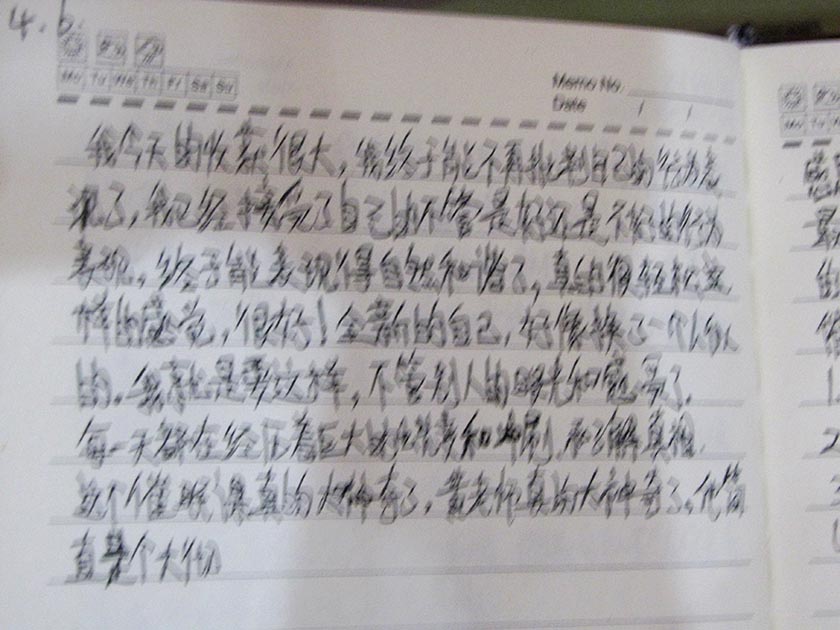 4.6.
Mo Tu We Th Fr Sa Su
Memo No.
Date / /
我今天的收获很大,我终于能不再批判自己的行为表
现了,我已经接受了自己的不管是好还是不好的行为
表现,终于能表现得自然和谐了,真的很轻松这
样的感觉,很好!全新的自己,好像换了一个人似
的。我就是要这样,不管别人的眼光和感受了。
每一天都在经历着巨大的和冲刷,和了解真相
这个催眠课真的太神奇了,黄老师真的太神奇了。他简
直是个大
Mo Tu